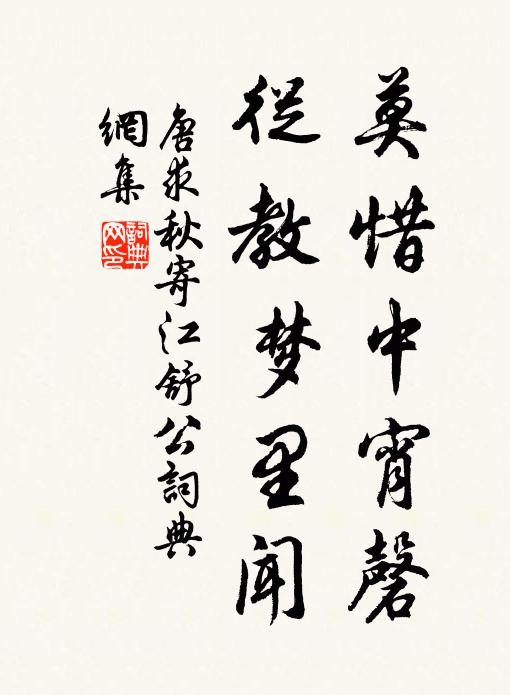 莫惜中宵磬
從教梦里闻
唐求秋寄江舒公詞典
網集
詞典
网印